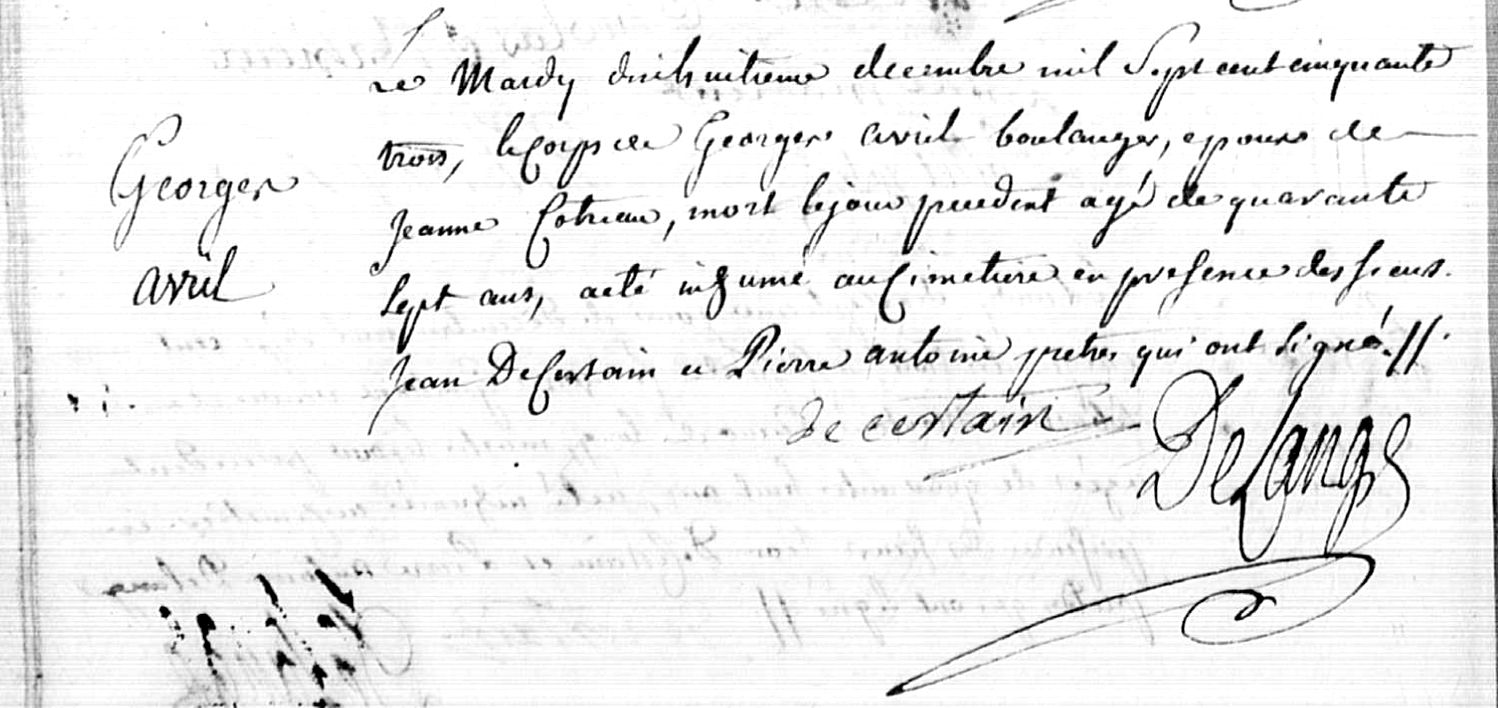 Georges
avril
Le Mardy dixhuitieme decembre mil Sept cent cinquante
trois, le Corps de Georges avril boulanger, epoux de
Jeanne Cotreau, mort le jour precedent agé de quarante
Sept ans, a eté inhumé au Cimetiere en presence des sieurs
Jean De Certain et Pierre antoine pretres qui ont Signés.//.
de certain Delange